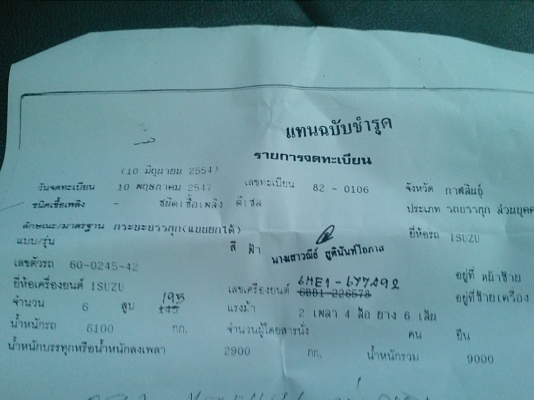 แทนฉบับชำรุด
รายการจดทะเบียน
(10 มิถุนายน 2554)
วันจดทะเบียน 10 พฤษภาคม 2547 เลขทะเบียน 82-0106 จังหวัด กาฬสินธุ์
ชนิดเชื้อเพลิง - ชนิดเชื้อเพลิง ดีเซล ประเภท รถบรรทุก ส่วนบุคค
ลักษณะ/มาตรฐาน กระบะบรรทุก(แบบยกได้) ยี่ห้อรถ ISUZU
แบบ/รุ่น สี ฟ้า นางเสาวณีย์
เลขตัวรถ 60-0245-42
ยี่ห้อเครื่องยนต์ ISUZU เลขเครื่องยนต์ 6HE1-677292 อยู่ที่ หน้าซ้าย
6BB1-226578 อยู่ที่ซ้ายเครื่อง
จำนวน 6 สูบ 195 แรงม้า 2 เพลา 4 ล้อ ยาง 6 เส้น
145
น้ำหนักรถ 6100 กก. จำนวนผู้โดยสารนั่ง คน ยืน
น้ำหนักบรรทุกหรือน้ำหนักลงเพลา 2900 กก. น้ำหนักรวม 9000